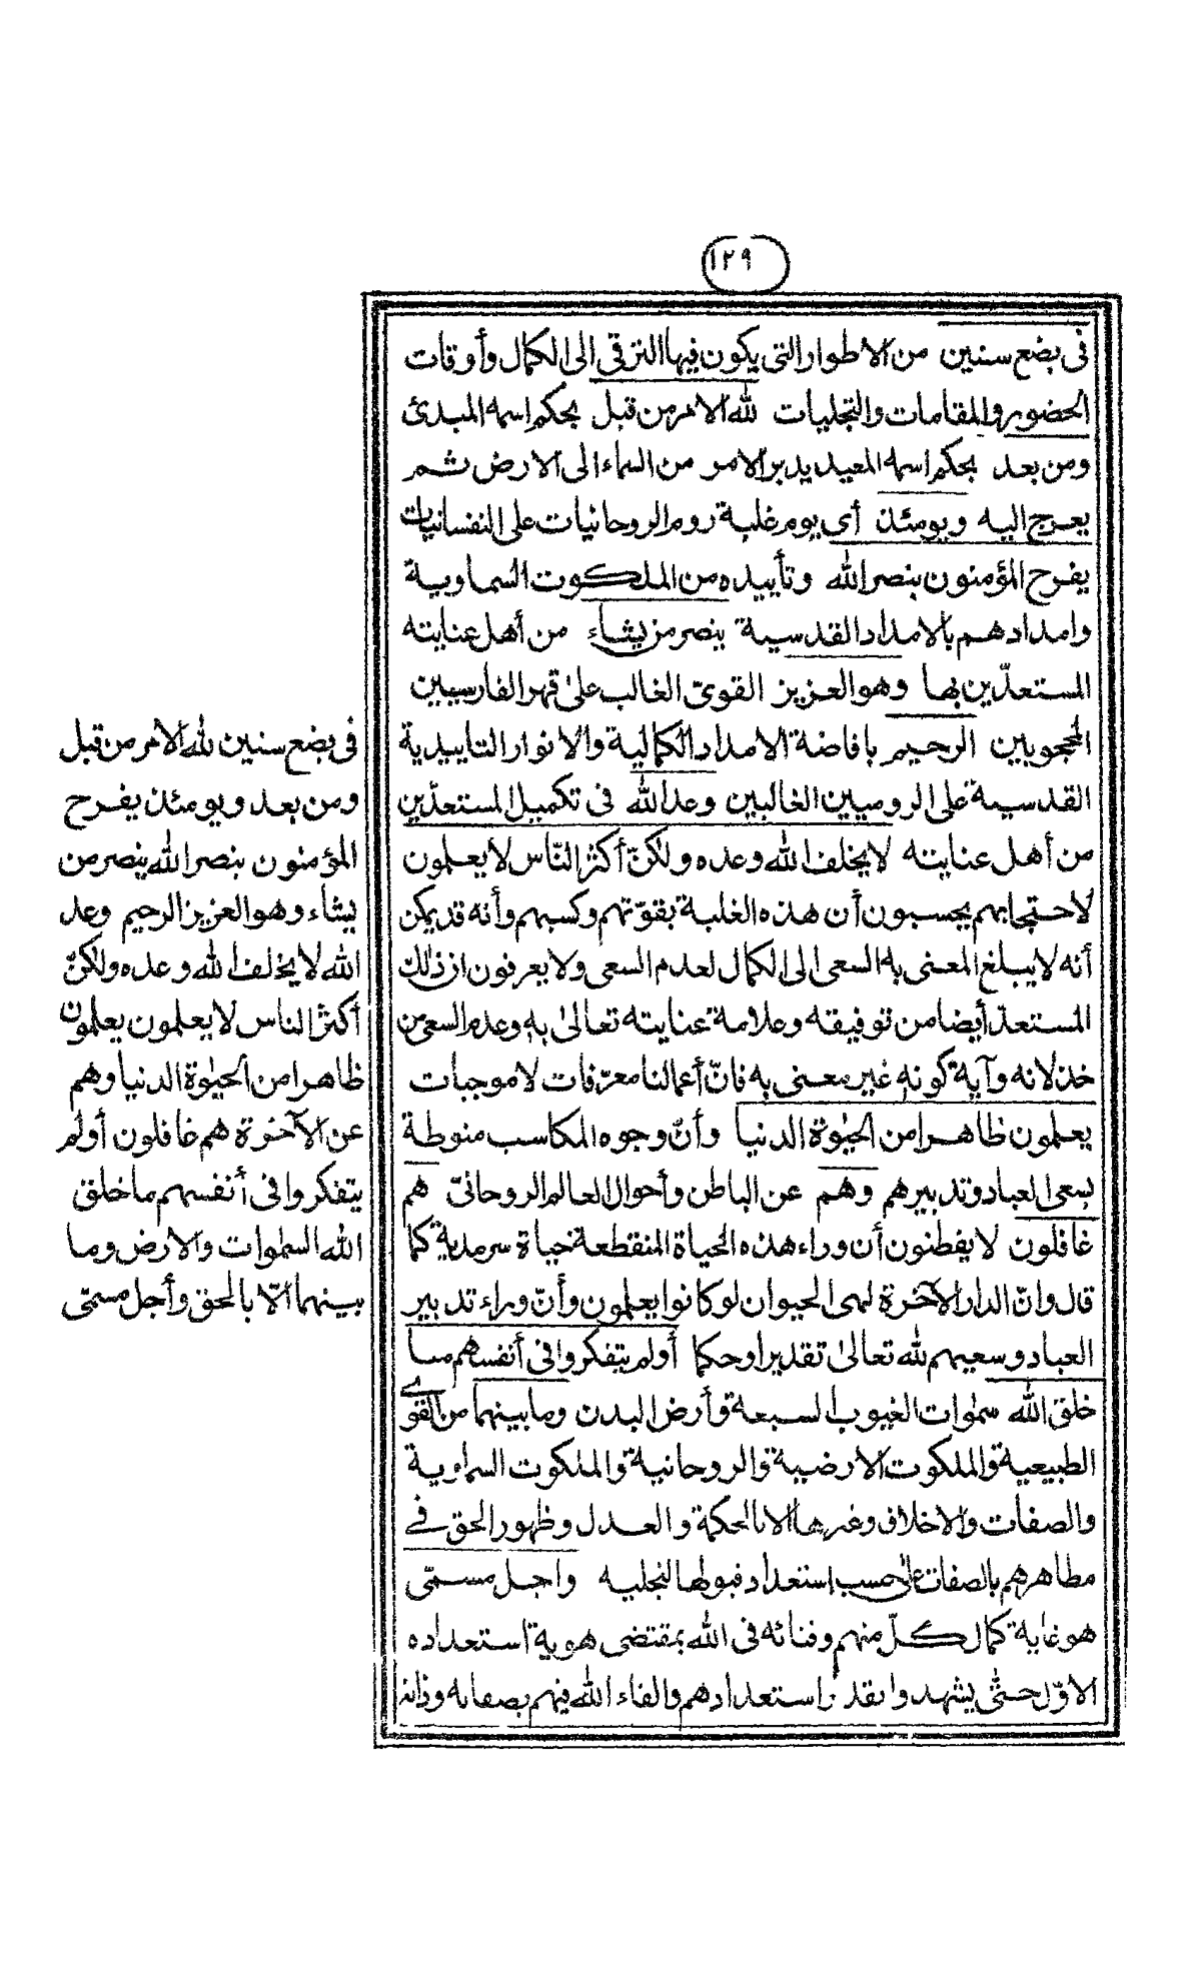 ١٢٩
فى بضع سنين من الاطوار التى يكون فيها الترقى الى الكمال وأوقات
الحضور والمقامات والتجليات لله الامر من قبل بحكم اسمه المبدئ
ومن بعد بحكم اسمه المعيد يدبر الامر من السماء الى الارض ثم
يعرج اليه ويومئذ أى يوم غلبة روم الروحانيات على النفسانيات
يفرح المؤمنون بنصر الله وتأييده من الملكوت السماوية
وامدادهم بالامداد القدسية ينصر من يشاء من أهل عنايته
المستعدّين بها وهو العزيز القوىّ الغالب على قهر الفارسيين
المحجوبين الرحيم بافاضة الامداد الكمالية والانوار التاييدية
القدسية على الروميين الغالبين وعد الله فى تكميل المستعدّين
من أهل عنايته لا يخلف الله وعده ولكنّ أكثر النّاس لا يعلمون
لاحتجابهم يحسبون أن هذه الغلبة بقوّتهم وكسبهم وأنه قد يمكن
أنه لا يبلغ المعنى به السعى الى الكمال لعدم السعى ولا يعرفون ان ذلك
المستعدّ أيضا من توفيقه وعلامة عنايته تعالىٰ به وعدم السعى من
خذلانه وآية كونه غير معنى به فانّ أعمالنا معرّفات لا موجبات
يعلمون ظاهرا من الحيٰوة الدنيا وأنّ وجوه المكاسب منوطة
بسعى العباد وتدبيرهم وهم عن الباطن وأحوال العالم الروحانىّ هم
غافلون لا يفطنون أن وراء هذه الحياة المنقطعة حياة سرمدية كما
قال وانّ الدار الآخرة لهى الحيوان لو كانوا يعلمون وأنّ وراء تدبير
العباد وسعيهم لله تعالىٰ تقديرا وحكما أولم يتفكروا فى أنفسهم ما
خلق الله سمٰوات الغيوب السبعة وأرض البدن وما بينهما من القوى
الطبيعية والملكوت الارضية والروحانية والملكوت السماوية
والصفات والاخلاق وغيرها الا بالحكمة والعدل وظهور الحق فى
مظاهرهم بالصفات على حسب استعداد قبولها لتجليه واجل مسمّى
هو غاية كمال كلّ منهم وفنائه فى الله بمقتضى هوية استعداده
الاوّل حتّى يشهدوا بقدر استعدادهم والقاء الله فيهم بصفاته وذاته
فى بضع سنين لله الامر من قبل
ومن بعد ويومئذ يفرح
المؤمنون بنصر الله ينصر من
يشاء وهو العزيز الرحيم وعد
الله لا يخلف الله وعده ولكنّ
أكثر الناس لا يعلمون يعلمون
ظاهرا من الحيٰوة الدنيا وهم
عن الآخرة هم غافلون أولم
يتفكروا فى أنفسهم ما خلق
الله السمٰوات والارض وما
بينهما الّا بالحق وأجل مسمّى